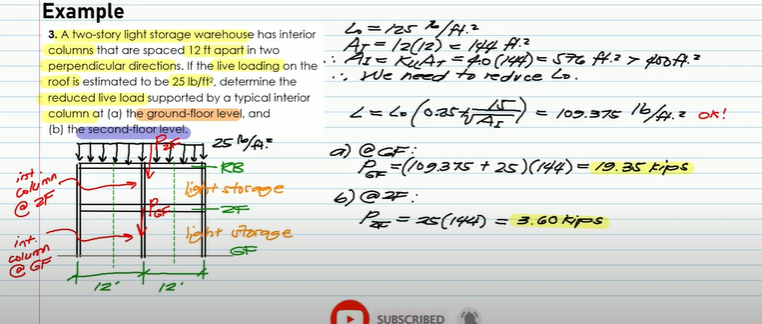 Example
3. A two-story light storage warehouse has interior
columns that are spaced 12 ft apart in two
perpendicular directions. If the live loading on the
roof is estimated to be 25 lb/ft², determine the
reduced live load supported by a typical interior
column at (a) the ground-floor level, and
(b) the second-floor level.
P2F
25 lb/ft.²
RB
int.
column
@ 2F
light storage
PGF
2F
int.
column
@ GF
light storage
GF
12'
12'
Lo = 125 lb/ft.²
AT = 12(12) = 144 ft.²
∴ AI = KLLAT = 4.0(144) = 576 ft.² > 400 ft.²
∴ We need to reduce Lo.
L = Lo (0.25 + 15/√AI) = 109.375 lb/ft.² OK!
a) @ GF:
PGF = (109.375 + 25)(144) = 19.35 kips
b) @ 2F:
P2F = 25(144) = 3.60 kips
SUBSCRIBED